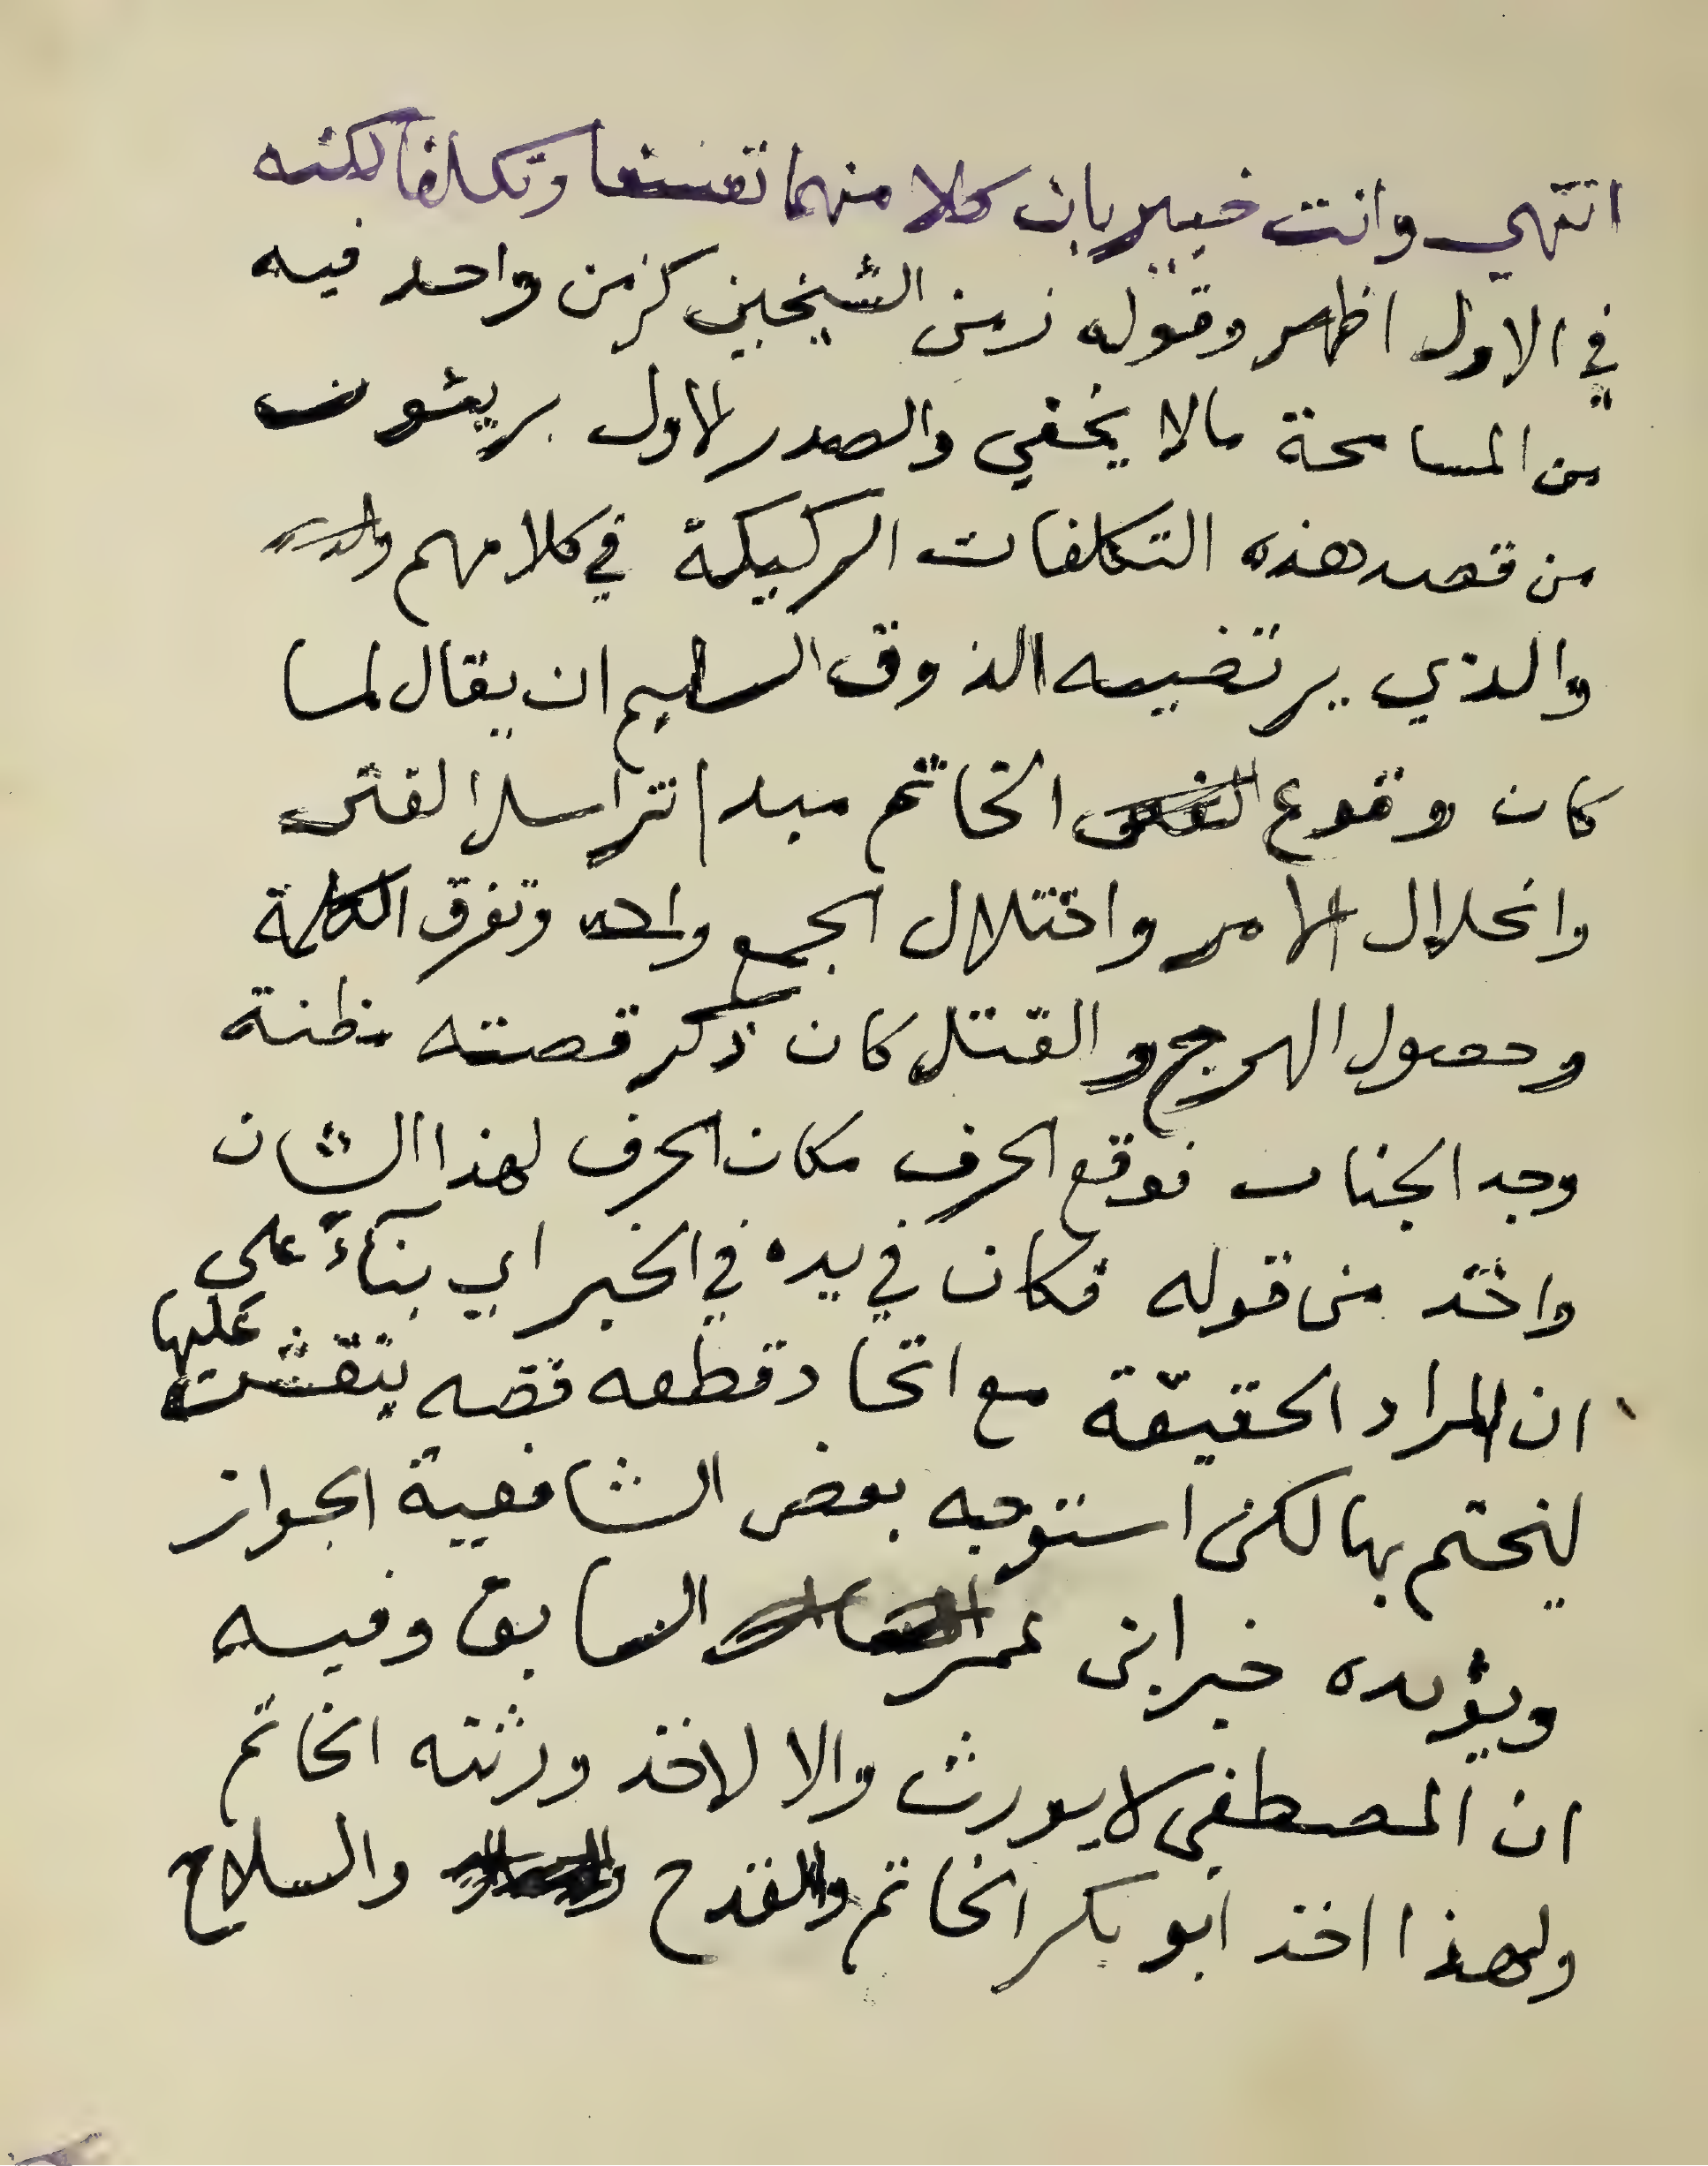 انتهي وانت خبير بان كلا منهما تعسفا وتكلفا لكنه
في الاول اظهر وقوله زمن الشيخين كزمن واحد فيه
من المسامحة مالا يخفي والصدر لاول بريئون
من قصد هذه التكلفات الركيكة في كلامهم
والذي يرتضيه الذوق السليم ان يقال لما
كان وقوع الخاتم مبدا تراسل الفتن
وانحلال الامر واختلال الجمع وتفرق الكلمة
وحصول الهرج والقتل كان ذكر قصته مظنة
وجد الجنان فوقع الحرف مكان الحرف لهذا الشان
واخذ من قوله فكان في يده في الخبر اي بنآء علي
ان المراد الحقيقة مع اتحاد قطعه فصه ينقش عليها
ليختم بها لكن استوجه بعض الشافعية الجواز
ويؤيده خبر ابن عمر السابق وفيه
ان المصطفي لا يورث والا لاخذ ورثته الخاتم
ولهذا اخذ ابو بكر الخاتم والقدح والسلاح